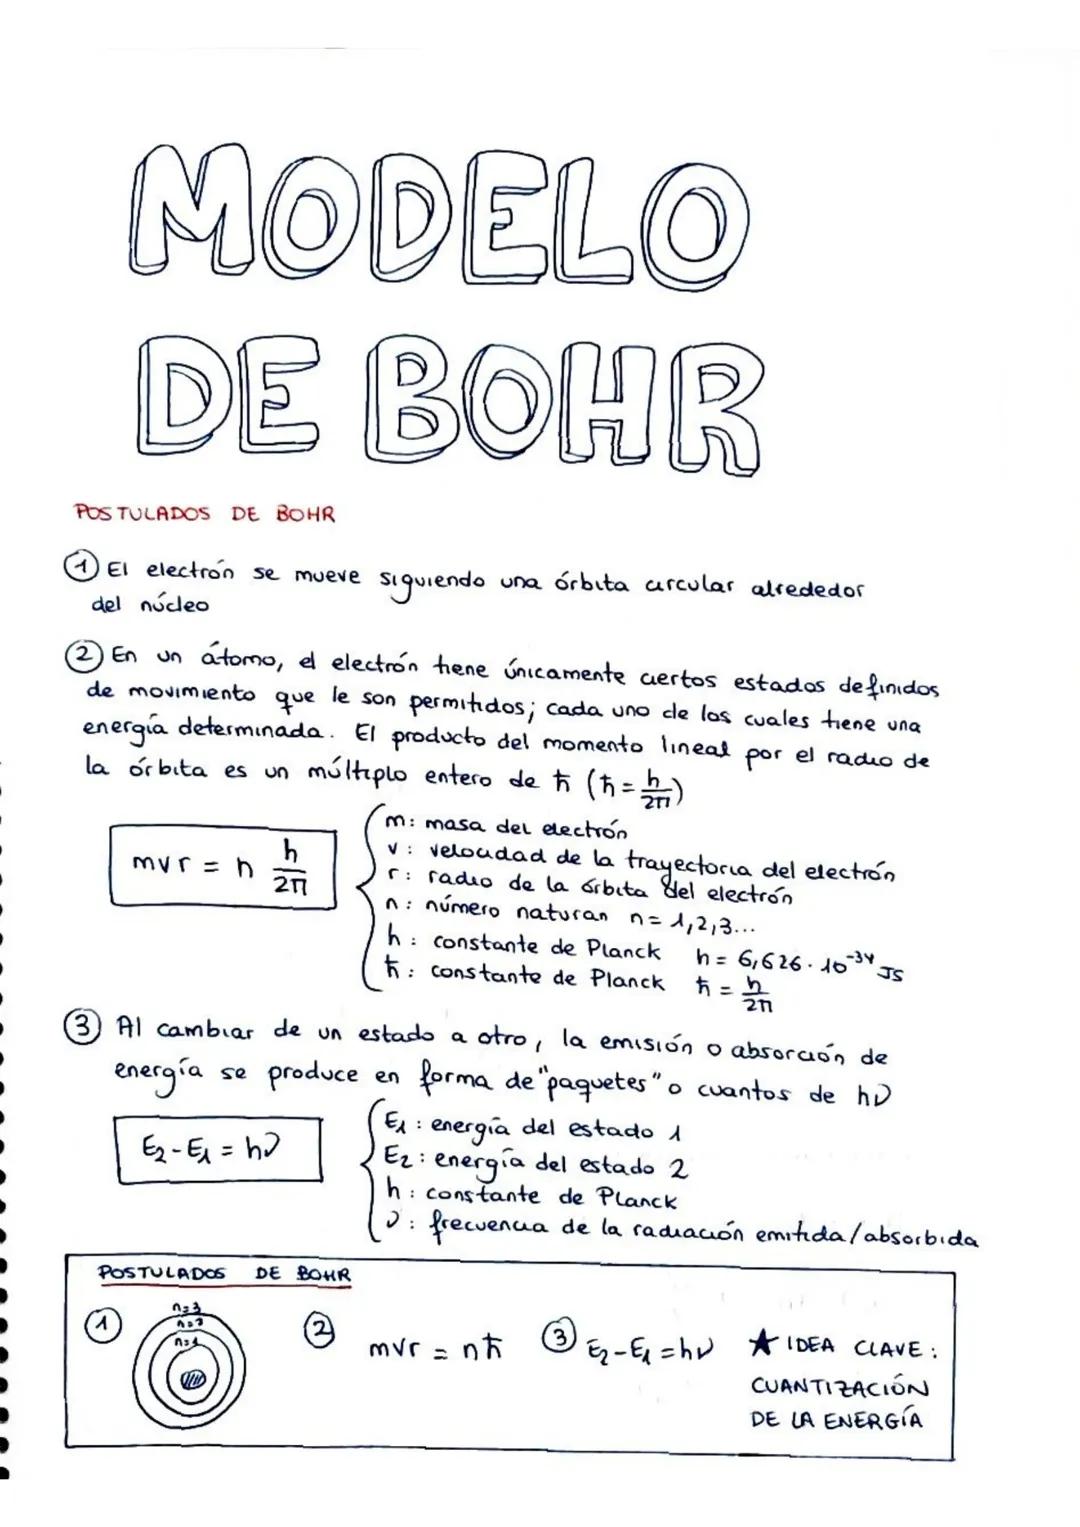 MODELO
DE BOHR
POSTULADOS DE BOHR
① El electrón se mueve siguiendo una órbita circular alrededor
del núcleo
② En un átomo, el electrón tiene únicamente ciertos estados definidos
de movimiento que le son permitidos; cada uno de los cuales tiene una
energía determinada. El producto del momento lineal por el radio de
la órbita es un múltiplo entero de ħ (ħ = h/2π)
mvr = n h/2π
m: masa del electrón
v: velocidad de la trayectoria del electrón
r: radio de la órbita del electrón
n: número naturan n= 1,2,3...
h: constante de Planck h= 6,626·10⁻³⁴ JS
ħ: constante de Planck ħ = h/2π
③ Al cambiar de un estado a otro, la emisión o absorción de
energía se produce en forma de "paquetes" o cuantos de hν
E₂-E₁ = hν
E₁: energía del estado 1
E₂: energía del estado 2
h: constante de Planck
ν: frecuencia de la radiación emitida/absorbida
POSTULADOS DE BOHR
① n=3
n=2
n=1
② mvr = nħ
③ E₂-E₁ = hν
★ IDEA CLAVE:
CUANTIZACIÓN
DE LA ENERGÍA